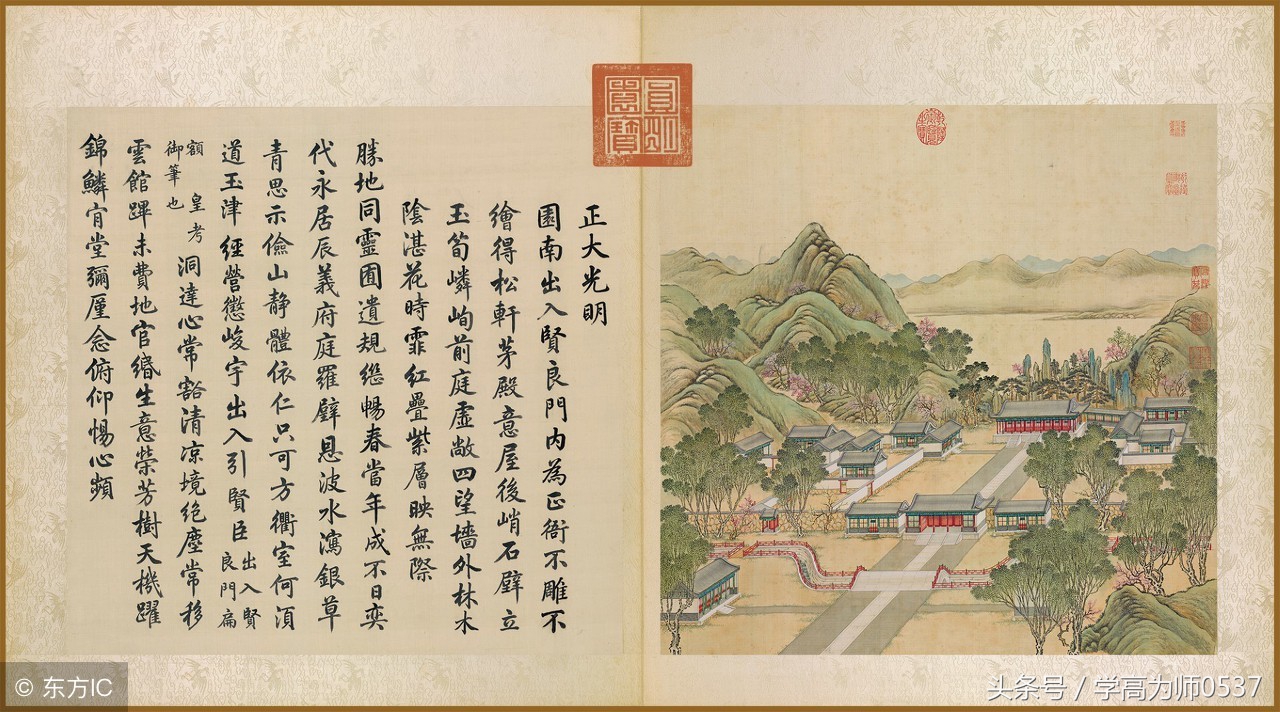 正大光明
園南出入賢良門内為正衙不雕不
繪得松軒茅殿意屋後峭石壁立
玉筍嶙峋前庭虛敞四望墻外林木
陰湛花時霏紅疊紫層映無際
勝地同靈囿遺規繼暢春當年成不日奕
代永居辰義府庭羅璧恩波水瀉銀草
青思示儉山静體依仁只可方衢室何湏
道玉津經營懲峻宇出入引賢臣出入賢
良門扁
額皇考
御筆也洞達心常豁清凉境絶塵常移
雲館蹕未費地官緡生意榮芳樹天機躍
錦鱗宵堂彌厪念俯仰惕心頻
圓明園寶
© 东方IC
头条号 / 学高为师0537